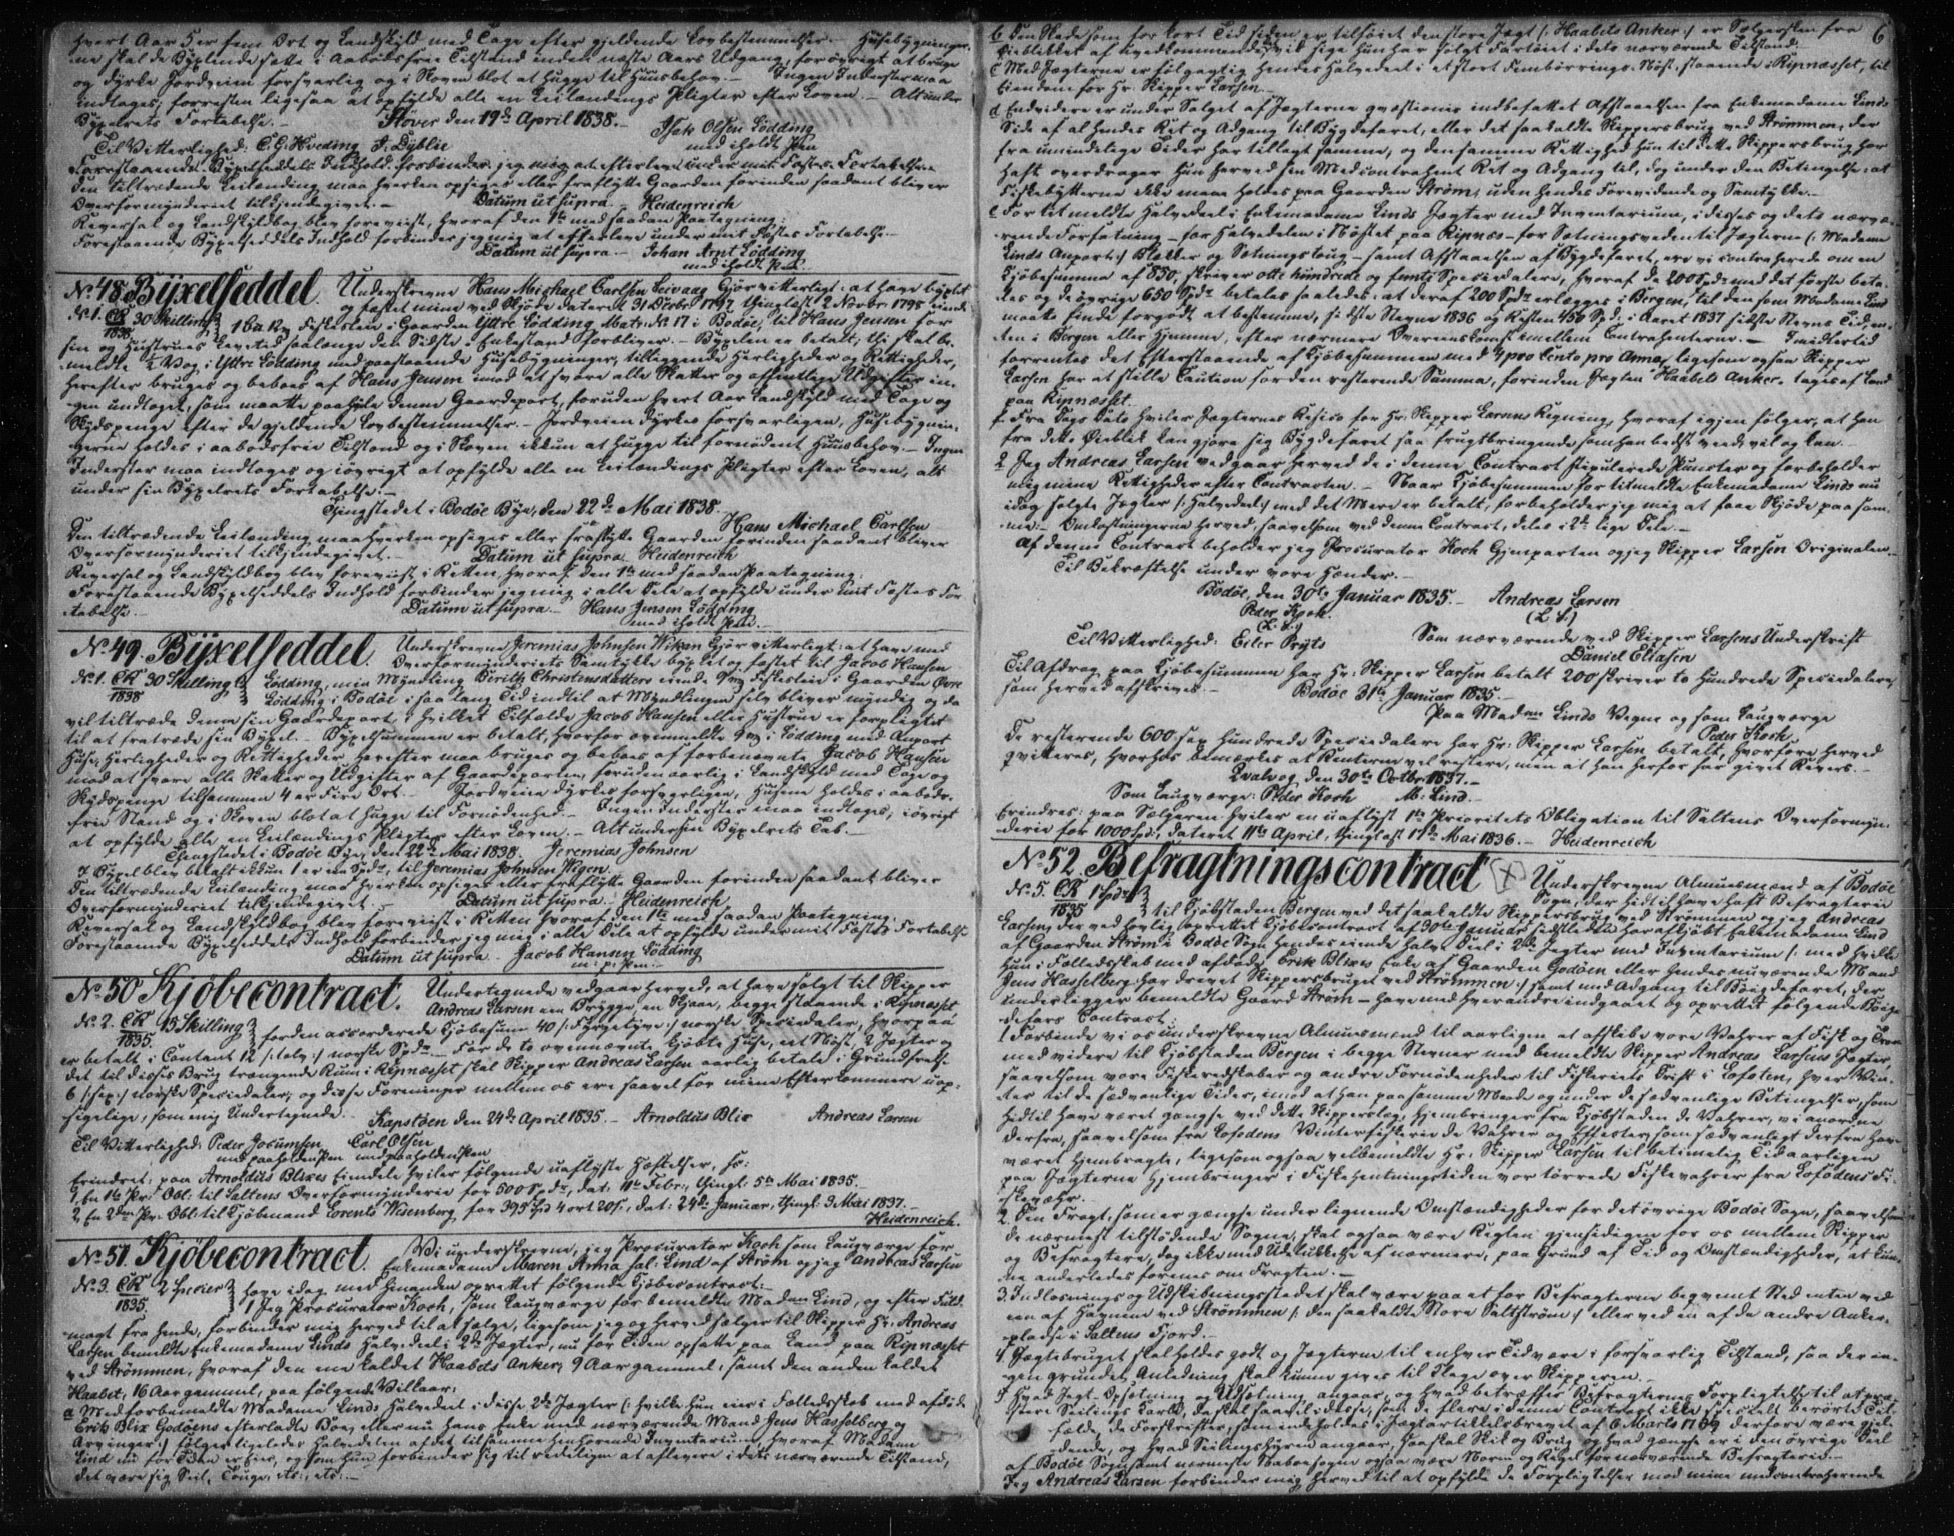 hvert Aar 5 er fem Ort og Landskyld med Tage efter gjeldende Lovbestemmelser. Husebygninger-
ne skal de Byxlende sætte i Aabodsfrie Tilstand inden næste Aars Udgang, forøvrigt at bruge
og dyrke Jordveien forsvarlig og i Skoven blot at hugge til Huusbehov. Ingen Inderster maa
indtages; forresten ligesaa at opfylde alle en Leilændings Pligter efter Loven. Alt under
Byxelrets Fortabelse. Stover den 19de April 1838. Isak Olsen Lødding
Til Vitterlighed: C. G. Hveding J. Dyblie med iholdt Pen
Forestaaende Byxelseddels Indhold forbinder jeg mig at efterleve under mit Fæstes Fortabelse
Den tiltrædende Leilænding maa hverken opsiges eller fraflytte Gaarden forinden saadant bliver
Overformynderiet tilkjendegivet. Datum ut supra. Heidenreich
Reversal og Landskyldbog blev foreviist, hvoraf den 1te med saadan Paategning:
Forestaaende Byxelseddels Indhold forbinder jeg mig at efterleve under mit Fæstes Fortabelse.
Datum ut supra. Johan Arnt Lødding
med iholdt Pen.
No. 48. Byxelseddel. Underskrevne Hans Michael Carlsen Seivaag Gjør vitterligt: at have byxlet
og fæstet mine ved Skjøde dateret 31 Decbr 1797 thinglæst 2 Novbr 1798 eiende
No. 1. CR 30 Skilling 1838 Fiskesleie i Gaarden Yttre Lødding Matr: No 17 i Bodøe, til Hans Jensen for
sin og Hustrues Levetid saalænge den Sidste i Enkestand forbliver. Byxelen er betalt; thi skal be-
meldte ½ Vog i Yttre Lødding med paastaaende Husebygninger, tilleggende Herligheder og Rettigheder,
herefter bruges og beboes af Hans Jensen imod at svare alle Skatter og offentlige Udgivter in-
gen undtaget, som maatte paahvile denne Gaardepart, foruden hvert Aar Landskyld med Tage og
Skydspenge efter de gjeldende Lovbestemmelser. Jordveien dyrkes forsvarligen, Husebygnin-
gerne holdes i aabodsfrie Tilstand og i Skoven ikkun at hugge til fornødent Huusbehov. Ingen
Inderster maa indtages og iøvrigt at opfylde alle en Leilændings Pligter efter Loven, alt
under sin Byxelrets Fortabelse.
Thingstedet i Bodøe Bye, den 22de Mai 1838.
Hans Michael Carlsen
Den tiltrædende Leilænding maa hverken opsiges eller fraflytte Gaarden forinden saadant bliver
Overformynderiet tilkjendegivet. Datum ut supra Heidenreich
Reversal og Landskyldbog blev foreviist i Retten, hvoraf den 1te med saadan Paategning:
Forestaaende Byxelseddels Indhold forbinder jeg mig i alle Dele at opfylde under mit Fæstes For-
tabelse. Datum ut supra. Hans Jensen Lødding
med iholdt Pen.
No. 49. Byxelseddel. Underskrevne Jeremias Johnsen Wikan Gjør vitterligt: at have med
Overformynderiets Samtykke byxlet og fæstet til Jacob Hansen
No. 1. CR 30 Skilling 1838 Lødding, min Myndling Birith Christensdatters eiende Fiskesleie i Gaarden Øvre
Lødding i Bodøe i saa lang Tid indtil at Myndlingen selv bliver myndig og da
vil tiltræde denne sin Gaardepart, i hvilket Tilfælde Jacob Hansen eller Hustrue er forpligtet
til at fratræde sin Byxel. Byxelsummen er betalt, hvorfor ovenmeldte i Lødding med Anpart
Huse, Herligheder og Rettigheder herefter maa bruges og beboes af forbenævnte Jacob Hansen
mod at svare alle Skatter og Udgifter af Gaardeparten, foruden aarlig i Landskyld med Tage og
Skydspenge tilsammen 4 er Fire Ort. Jordveien dyrkes forsvarligen, Husene holdes i aabods-
frie Stand og i Skoven blot at hugge til Fornødenhed. Ingen Inderster maa indtages, iøvrigt
at opfylde alle en Leilændings Pligter efter Loven. Alt under sin Byxelrets Tab.
Thingstedet i Bodøe Bye, den 22de Mai 1838. Jeremias Johnsen
I Byxel blev betalt ikkun 1 er een Spdr., til Jeremias Johnsen Wigen.
Den tiltrædende Leilænding maa hverken opsiges eller fraflytte Gaarden forinden saadant bliver
Overformynderiet tilkjendegivet. Datum ut supra. Heidenreich
Reversal og Landskyldbog blev foreviist i Retten hvoraf den 1te med saadan Paategning:
Forestaaende Byxelseddels Indhold forbinder jeg mig i alle Dele at opfylde under mit Fæstes Fortabelse
Datum ut supra. Jacob Hansen Lødding
m. p. Pen.
No. 50 Kjøbecontract. Undertegnede vedgaar herved, at have solgt til Skipper
Andreas Larsen en Brygge, en Sjaae, begge staaende i Ripnæsset
No. 2. CR 15 Skilling 1835. for den accorderede Kjøbesum 40 /: Fyrgetyve :/ norske Speciedaler, hvorpaa
er betalt i Contant 12 /: tolv :/ norske Spdr. For de to ovennævnte kjøbte Huse, et Nøst, 2 Jegter og
det til disses Brug trængende Rum i Ripnæsset skal Skipper Andreas Larsen aarlig betale i Grundfrelse
6 /: sex :/ norske Speciedaler, og disse Foreninger mellem os ere saavel for mine Efterkommere uop-
sigelige, som mig Undertegnede. Kapstøen den 24de April 1835. Arnoldus Blix Andreas Larsen
Til Vitterlighed: Peder Jocumsen Carl Olsen
med paaholden Pen med paaholden Pen
Erindres: paa Arnoldus Blixes Eiendele hviler følgende uaflyste Hæftelser, sc:
1, En 1te Pr. Obl: til Saltens Overformynderie for 500 Spdr, dat: 11te Febr:, thingl: 5te Mai 1835.
2, En 2den Pr. Obl: til Kjøbmand Lorents Weisenberg for 395 Spd 4 ort 20 s:, dat: 24de Januar, thingl: 3 Mai 1837.
Heidenreich.
No. 51. Kjøbecontract. Vi underskrevne, jeg Procurator Koch som Laugværge for
Enkemadame Maren Anna sal: Lind af Strøm og jeg Andreas Larsen
No. 3. CR 2 Specier 1835. have idag med hinanden oprettet følgende Kjøbecontract:
1 Jeg Procurator Koch, som Laugværge for bemeldte Madam Lind, og efter Fuld-
magt fra hende, forbinder mig herved til at sælge, ligesom jeg og herved sælger til Skipper Hr. Andreas
Larsen bemeldte Enkemadame Linds Halvedeel i 2de Jægter, nu for Tiden opsatte paa Land paa Ripnæsset
ved Strømmen, hvoraf den ene kaldet Haabets Anker, 9 Aar gammel, samt den anden kaldet
Haabet, 16 Aar gammel, paa følgende Vilkaar:
a Med forbemeldte Madame Linds Halvedeel i disse 2de Jægter (: hvilke hun eier i Fælledsskab med afdøde
Erik Blix Godøens efterladte Boe, eller nu hans Enke med nærværende Mand Jens Hasselberg og
Arvinger :/ følger ligeledes Halvedelen af det til samme henhørende Inventarium, hvoraf Madame
Lind nu for Tiden er Eier, og som hun forbinder sig til redeligen at aflevere i dets nærværende Tilstand,
det være sig Seil, Touge, etc:, etc:
6
b Den Skade som for kort Tid siden er tilføiet den store Jægt (: Haabets Anker :/ er Sælgersken fra
Øieblikket af uvedkommende, vil sige hun har solgt Fartøiet i dets nærværende Tilstand.
c Med Jægterne er følgagtig hendes Halvedeel i et stort Fembørrings-Nøst, staaende i Ripnæsset, til
Eiendom for Hr. Skipper Larsen.
d Endvidere er under Salget af Jægterne qvæstionis indbefattet Afstaaelsen fra Enkemadame Linds
Side af al hendes Ret og Adgang til Bygdefaret, eller det saakaldte Skippersbrug ved Strømmen, der
fra umindelige Tider har tillagt samme, og den samme Rettighed hun til dette Skippersbrug har
haft overdrager hun herved sin Medcontrahent Ret og Adgang til, dog under den Betingelse: at
Fiskebytterne ikke maae holdes paa Gaarden Strøm, uden hendes Forevidende og Samtykke.
e For titmeldte Halvedeel i Enkemadame Linds Jægter med Inventarium, i disses og dets nærvæ-
rende Forfatning - for Halvedelen i Nøstet paa Ripnæs - for Sætningsveden til Jægterne (: Madame
Linds Anpart :/ Blokker og Sætningstoug - samt Afstaaelsen af Bygdefaret, ere vi contraherede om en
Kjøbesumma af 850, skriver otte hundrede og femti Speciedalere, hvoraf de 200 Spdr med det første beta-
les og de øvrige 650 Spdr betales saaledes: at deraf 200 Spdr erlægges i Bergen, til den som Madame Lind
maatte finde forgodt at bestemme, sidste Stevne 1836 og Resten 450 Spd: i Aaret 1837 sidste Stevns Tid, en-
ten i Bergen eller Hjemme, efter nærmere Overeenskomst imellem Contrahenterne. Imidlertid
forrentes det Efterstaaende af Kjøbesummen med 4 pro Cento pro Anno, ligesom ogsaa Skipper
Larsen har at stille Caution for den resterende Summa, forinden Jægten "Haabets Anker" tages af Land
paa Ripnæsset.
f Fra Dags Dato hviler Jægternes Resico for Hr. Skipper Larsens Regning, hvoraf igjen følger, at han
fra dette Øieblik kan gjøre sig Bygdefaret saa frugtbringende som han bedst veed, vil og kan.
2 Jeg Andreas Larsen vedgaar herved de i denne Contract stipulerede Puncter og forbeholder
mig mine Rettigheder efter Contracten. Naar Kjøbesummen for titmeldte Enkemadame Linds nu
idag solgte Jægter (: Halvedeel :/ med det Mere er betalt, forbeholder jeg mig at faae Skjøde paa sam-
me. Omkostningerne herved, saavelsom ved denne Contract, deles i 2de lige Dele.
Af denne Contract beholder jeg Procurator Koch Gjenparten og jeg Skipper Larsen Originalen.
Til Bekræftelse under vore Hænder.
Bodøe, den 30te Januar 1835. Andreas Larsen
Peder Koch. (L.S.)
(L.S.)
Til Vitterlighed: Eiler Pryts Som nærværende ved Skipper Larsens Underskrift
Daniel Eliasen
Til Afdrag paa Kjøbesummen har Hr. Skipper Larsen betalt 200 skriver to hundrede Speciedalere,
som herved afskrives. Bodøe 31te Januar 1835.
Paa Madam Linds Vegne og som Laugværge
Peder Koch
De resterende 600: sex Hundrede Speciedalere har Hr. Skipper Larsen betalt, hvorfore herved
qvitteres, hvorhos bemærkes at Renterne vel restere, men at han herfor har givet Revers.
Qvalvog, den 30te Octbr 1837.
Som Laugværge: Peder Koch M. Lind.
Erindres: paa Sælgeren hviler en uaflyst 1te Prioritets Obligation til Saltens Overformyn-
derie for 1000 Spd:, dateret 11te April, thinglæst 17de Mai 1836. Heidenreich
No. 52. Befragtningscontract Underskrevne Almuesmænd af Bodøe
Sogn, der hidtil have haft Befragterie
No. 5. CR 1 Spdr 1835 til Kjøbstaden Bergen ved det saakaldte Skippersbrug ved Strømmen og jeg Andreas
Larsen, der ved lovlig oprettet Kjøbecontract af 30te Januar sidstleden har afkjøbt Enkemadame Lind
af Gaarden Strøm i Bodøe Sogn hendes eiende halve Deel i 2de Jægter med Inventarium (: med hvilke
hun i Fælledsskab med afdøde Erik Blixes Enke af Gaarden Godøen eller hendes nuværende Mand
Jens Hasselberg har drevet Skippersbruget ved Strømmen :/ samt med Adgang til Bøigdefaret, der
underligger bemeldte Gaard Strøm - have med hverandre indgaaet og oprettet følgende Bøig-
defars Contract.
1 Forbinde vi os underskrevne Almuesmænd til aarligen at afskibe vore Vahrer af Fisk og Tran
med videre til Kjøbstaden Bergen i begge Stevner med bemeldte Skipper Andreas Larsens Jægter,
saavelsom vore Fiskeredskaber og andre Fornødenheder til Fiskeriets Drift i Lofoten, hver Vin-
ter til de sædvanlige Tider, imod at han paa samme Maade og under de sædvanlige Betingelser, som
hidtil have været gængse ved dette Skipperslag, hjembringer fra Kjøbstaden de Vahrer, vi anordne
derfra, saavelsom fra Lofodens Vinterfiskerie de Vahrer og Effecter, som sædvanligt derfra have
været hjembragte, ligesom ogsaa velbemeldte Hr. Skipper Larsen til betimelig Tid aarligen
paa Jægterne hjembringer i Fiskehentningstiden vor tørrede Fiskevahrer fra Lofodens Fi-
skevæhr.
2. Den Fragt, som er gængse under lignende Omstændigheder for det øvrige Bodøe Sogn, saavelsom
de nærmest tilstødende Sogne, skal ogsaa være Reglen gjensidigen for os mellem Skipper
og Befragtere, dog ikke med Udelukkelse af nærmere, paa Grund af Tid og Omstændigheder, at kun-
ne anderledes forenes om Fragten.
3. Indlosnings og Udskibningsstedet skal være paa et for Befragterne beqvemt Sted enten ved
een af Havnene ved Strømmen (: den saakaldte Store Saltstrøm :/ eller ved en af de andre Anker-
pladse i Saltens Fjord.
4. Jægtebruget skal holdes godt og Jægterne til enhver Tid være i forsvarlig Tilstand, saa der in-
gen grundet Anledning skal kunne gives til Klage over Skipperen.
5 Hvad Jægt-Opsætning og Udsætning angaar, og hvad betræffer Befragternes Forpligtelse til at præ-
stere Seilings Karle, da skal saavel i disse, som de flere i denne Contract ikke specielt berørte Til-
fælde, de Forskrifter, som indeholdes i Jægtartikkelsbrevet af 6 Marts 1769 derfore være gjel-
dende, og hvad Seilingshyren angaar, saa skal Skik og Brug og hvad gængse er i den øvrige Deel
af Bodøe Sogn samt nærmeste Naboesogne ogsaa være Norm og Regel for nærværende Befragterie.
Jeg Andreas Larsen forbinder mig herved til at opfylde de Forpligtelser mod mine medcontraherende